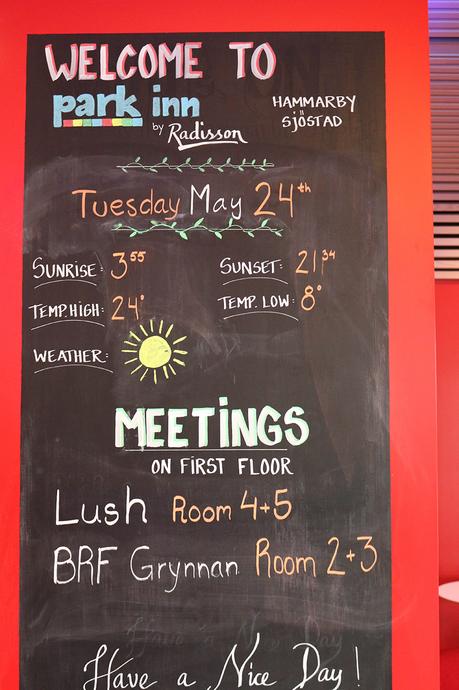 WELCOME TO
park inn
by Radisson
HAMMARBY
SJÖSTAD
Tuesday May 24th
SUNRISE: 3 55 SUNSET: 21 34
TEMP. HIGH: 24° TEMP. LOW: 8°
WEATHER:
MEETINGS
ON FIRST FLOOR
Lush Room 4+5
BRF Grynnan Room 2+3
Have a Nice Day
Have a Nice Day!